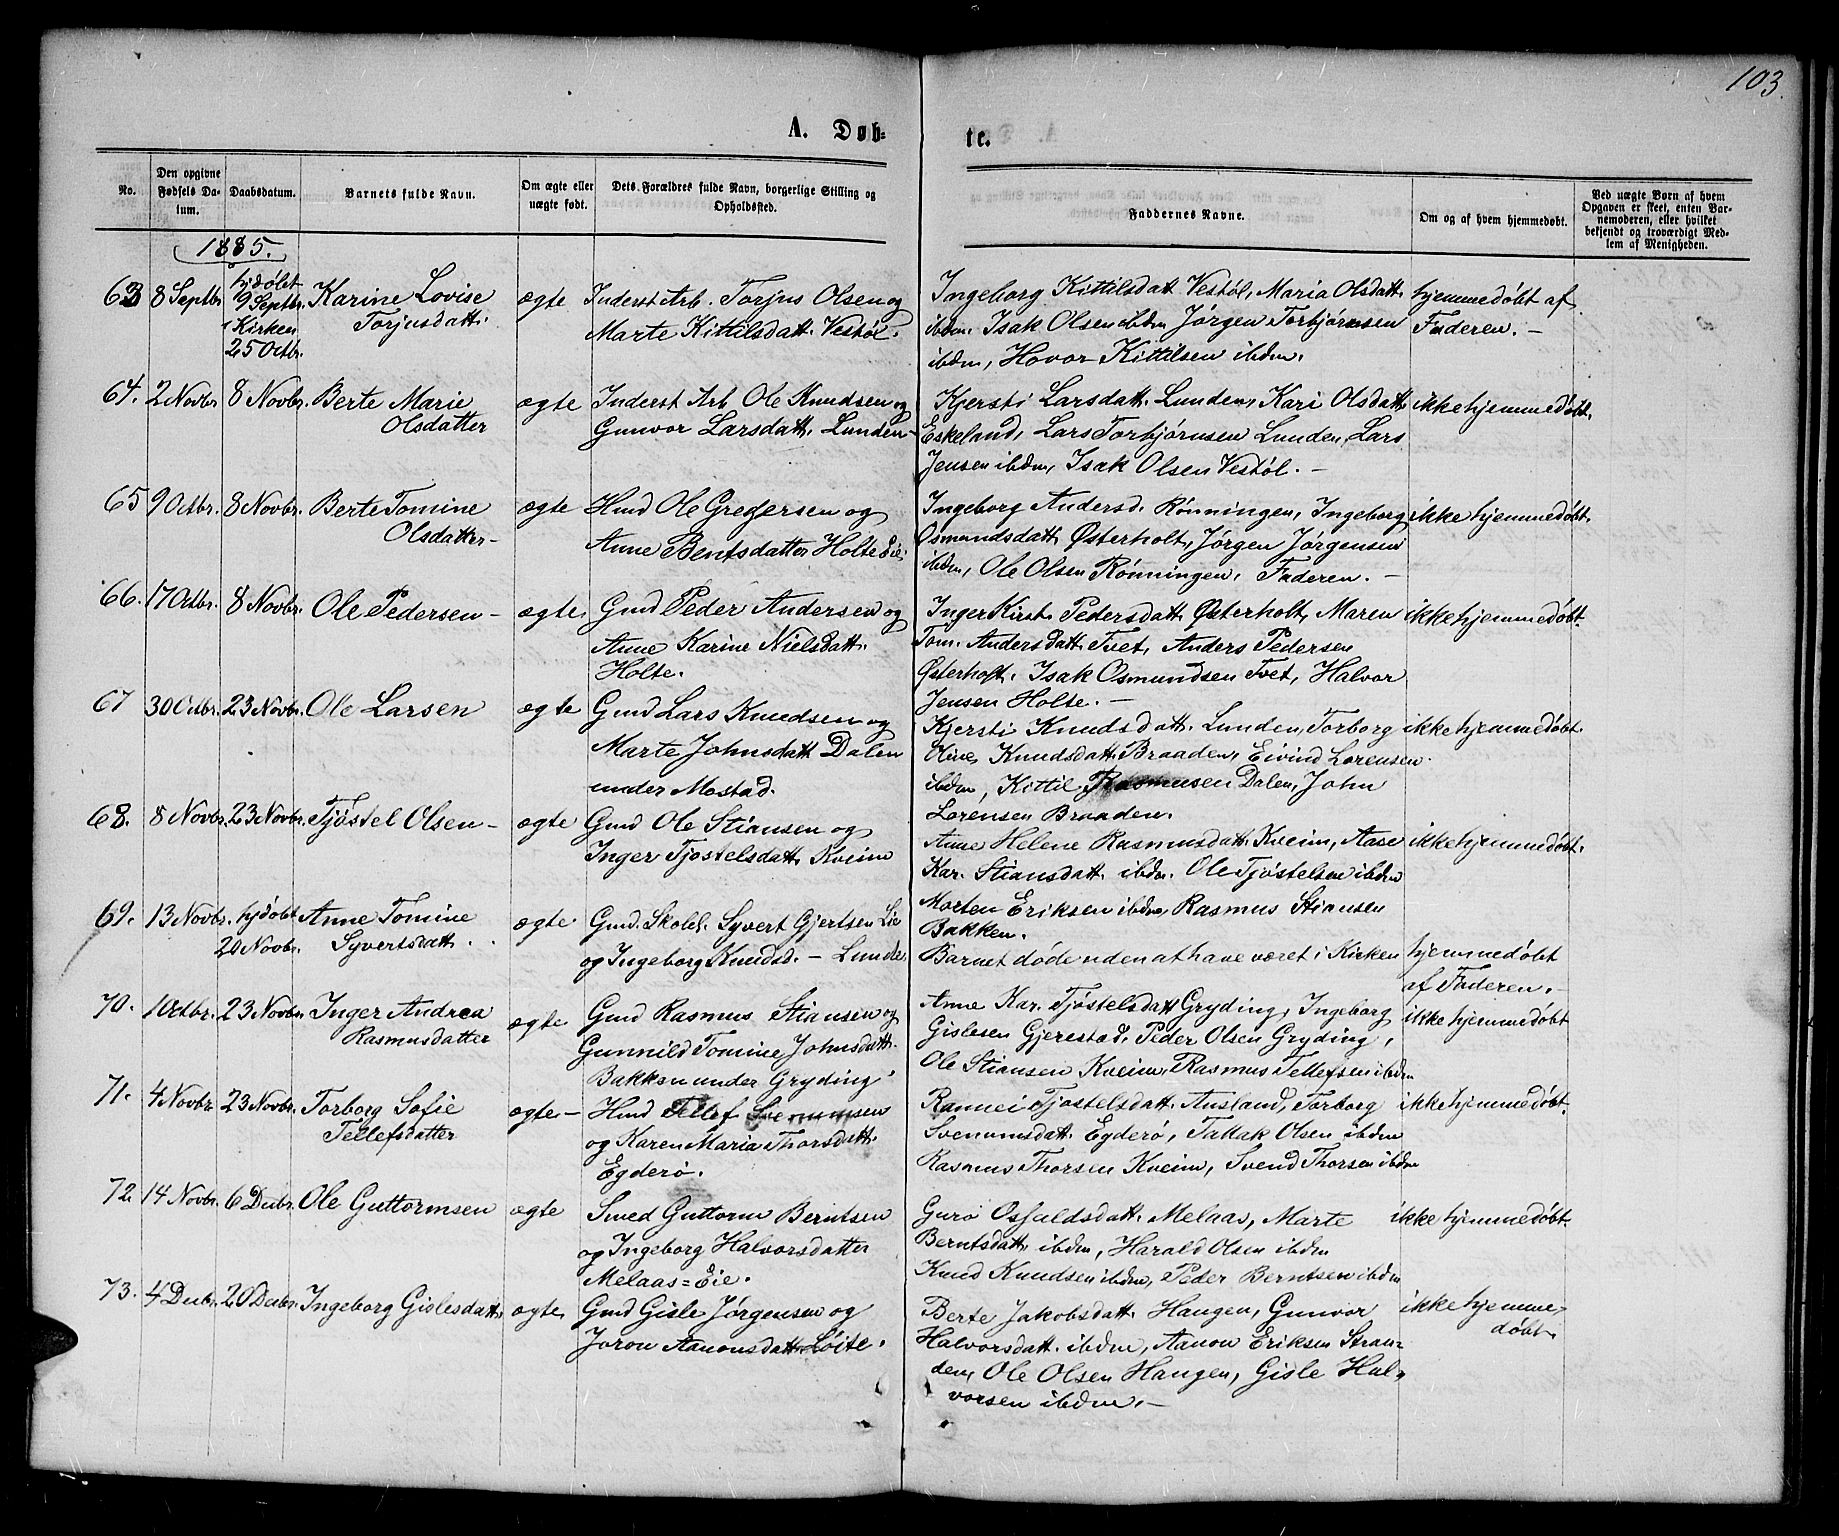 103.
A. Døb-
te.
No.
Den opgivne Fødsels Da-tum.
Daabsdatum.
Barnets fulde Navn.
Om ægte eller uægte født.
Dets Forældres fulde Navn, borgerlige Stilling og Opholdssted.
Faddernes Navne.
Om og af hvem hjemmedøbt.
Ved uægte Børn af hvem Opgaven er skeet, enten Bar-nemoderen, eller hvilket bekjendt og troværdigt Med-lem af Menigheden.
1885.
63 8 Septbr. hjdøbt 9 Septbr. i Kirken 25 Octbr.
Karine Lovise
Torjusdatt.
ægte
Inderst Arb. Torjus Olsen og
Marte Kittilsdatt. Vestøl.
Ingeborg Kittilsdatt Vestøl, Maria Olsdatt
ibdm. Isak Olsen ibdm Jørgen Torbjørnsen
ibdm, Hovor Kittilsen ibdm.
hjemmedøbt af
Faderen. -
64. 2 Novbr 8 Novbr. Berte Marie
Olsdatter
ægte
Inderst Arb Ole Knudsen og
Gunvor Larsdatt. Lunden
Kjersti Larsdatt. Lunden, Kari Olsdatt.
Eskeland, Lars Torbjørnsen Lunden, Lars
Jensen ibdm, Isak Olsen Vestøl. -
ikke hjemmedøbt.
65 9 Octbr. 8 Novbr. Berte Tomine
Olsdatter -
ægte
Hmd Ole Gregersen og
Anne Bentsdatter Holte Eie.
Ingeborg Andersd. Rønningen, Ingeborg
Osmundsdatt. Østerholt, Jørgen Jørgensen
ibdm, Ole Olsen Rønningen, Faderen. -
ikke hjemmedøbt.
66. 17 Octbr. 8 Novbr. Ole Pedersen -
ægte
Gmd Peder Andersen og
Anne Karine Nielsdatt.
Holte.
Inger Kirst. Pedersdatt. Østerholt, Maren
Tom. Andersdatt. Tvet, Anders Pedersen
Østerholt. Isak Osmundsen Tvet, Halvor
Jensen Holte. -
ikke hjemmedøbt.
67 30 Octbr. 23 Novbr. Ole Larsen
ægte
Gmd Lars Knudsen og
Marte Johnsdatt Dalen
under Mostad.
Kjersti Knudsdatt. Lunden, Torborg
Oline Knudsdatt. Braaden, Eivind Lorensen
ibdm, Kittil Rasmusen Dalen, John
Lorensen Braaden.
ikke hjemmedøbt.
68. 8 Novbr. 23 Novbr. Tjøstel Olsen -
ægte
Gmd Ole Stiansen og
Inger Tjøstelsdatt. Kveim
Anne Helene Rasmusdatt. Kveim, Aase
Kar. Stiansdatt. ibdm. Ole Tjøstelsen ibdm
Morten Eriksen ibdm, Rasmus Stiansen
Bakken.
ikke hjemmedøbt.
69. 13 Novbr. hjdøbt 20 Novbr. Anne Tomine
Syvertsdatt.
ægte
Gmd. Skolel. Syvert Gjertsen Lie
og Ingeborg Knudsd. - Lunde
Barnet døde uden at have været i Kirken
hjemmedøbt
af Faderen. -
70. 1 Octbr. 23 Novbr. Inger Andrea
Rasmusdatter
ægte
Gmd Rasmus Stiansen og
Gunnild Tomine Johnsdatt.
Bakken under Gryding
Anne Kar. Tjøstelsdatt Gryding, Ingeborg
Gislesen Gjerestad, Peder Olsen Gryding,
Ole Stiansen Kveim, Rasmus Tellefsen ibdm
ikke hjemmedøbt
71. 4 Novbr. 23 Novbr. Torborg Sofie
Tellefsdatter
ægte -
Hmd Tellef Svenumsen
og Karen Maria Thorsdatt.
Egderø.
Rannei Tjøstelsdatt. Ausland, Torborg
Svenumsdatt. Egderø, Tallak Olsen ibdm
Rasmus Thorsen Kveim, Svend Thorsen ibdm
ikke hjemmedøbt.
72. 14 Novbr. 6 Decbr. Ole Guttormsen
ægte
Smed Guttorm Berntsen
og Ingeborg Halvorsdatter
Melaas=Eie.
Guro Osfuldsdatt. Melaas, Marte
Berntsdatt. ibdm, Harald Olsen ibdm
Knud Knudsen ibdm, Peder Berntsen ibdm
ikke hjemmedøbt.
73. 4 Decbr. 20 Decbr. Ingeborg Gislesdatt.
ægte
Gmd Gisle Jørgensen og
Joron Aanonsdatt. Løite.
Berte Jakobsdatt. Haugen, Gunvor
Halvorsdatt. ibdm, Aanon Eriksen Stran-
den, Ole Olsen Haugen, Gisle Hal-
vorsen ibdm. -
ikke hjemme
døbt.